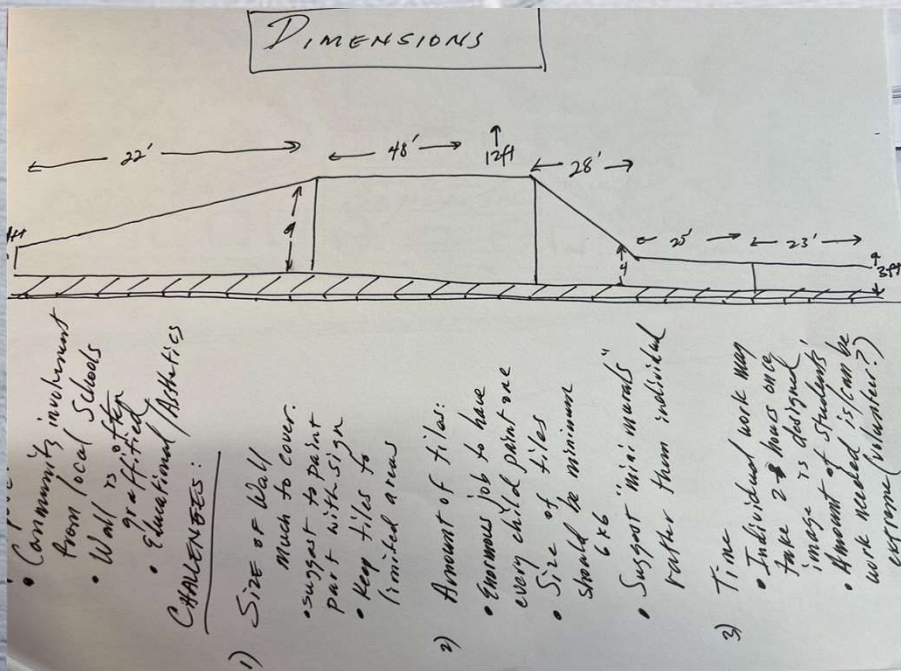 DIMENSIONS
22'
48'
12ft
28'
9
4
25'
23'
3ft
• Community involvement
from local Schools
• Wall is often
graffitied
• Educational/Asthetics
CHALENGES:
1) Size of Wall
much to cover.
• suggest to paint
part with sign
• Keep tiles to
limited areas
2) Amount of tiles:
• Enormous job to have
every child paint one
• Size of tiles
should be minimum
6x6
• Suggest "mini murals"
rather them individual
3) Time
• Individual work may
take 2 hours once
image is designed
• Amount of students'
work needed is/can be
extreme (volunteer?)